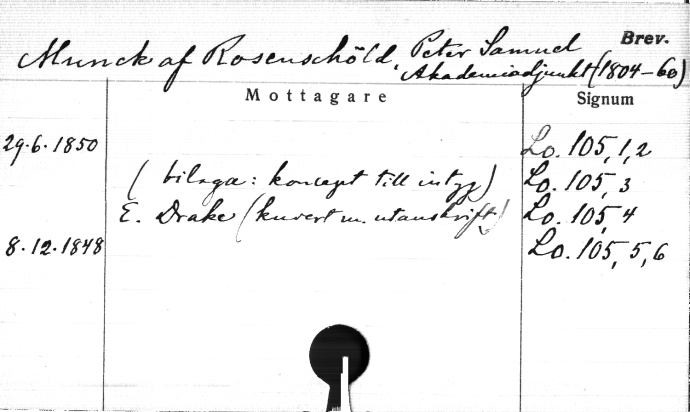 Munck af Rosenschöld, Peter Samuel Brev.
Akademiadjunkt (1804–60)
Mottagare Signum
29.6.1850 Lo. 105, 1, 2
(bilaga: koncept till intyg) Lo. 105, 3
E. Drake (kuvert m. utanskrift) Lo. 105, 4
8.12.1848 Lo. 105, 5, 6